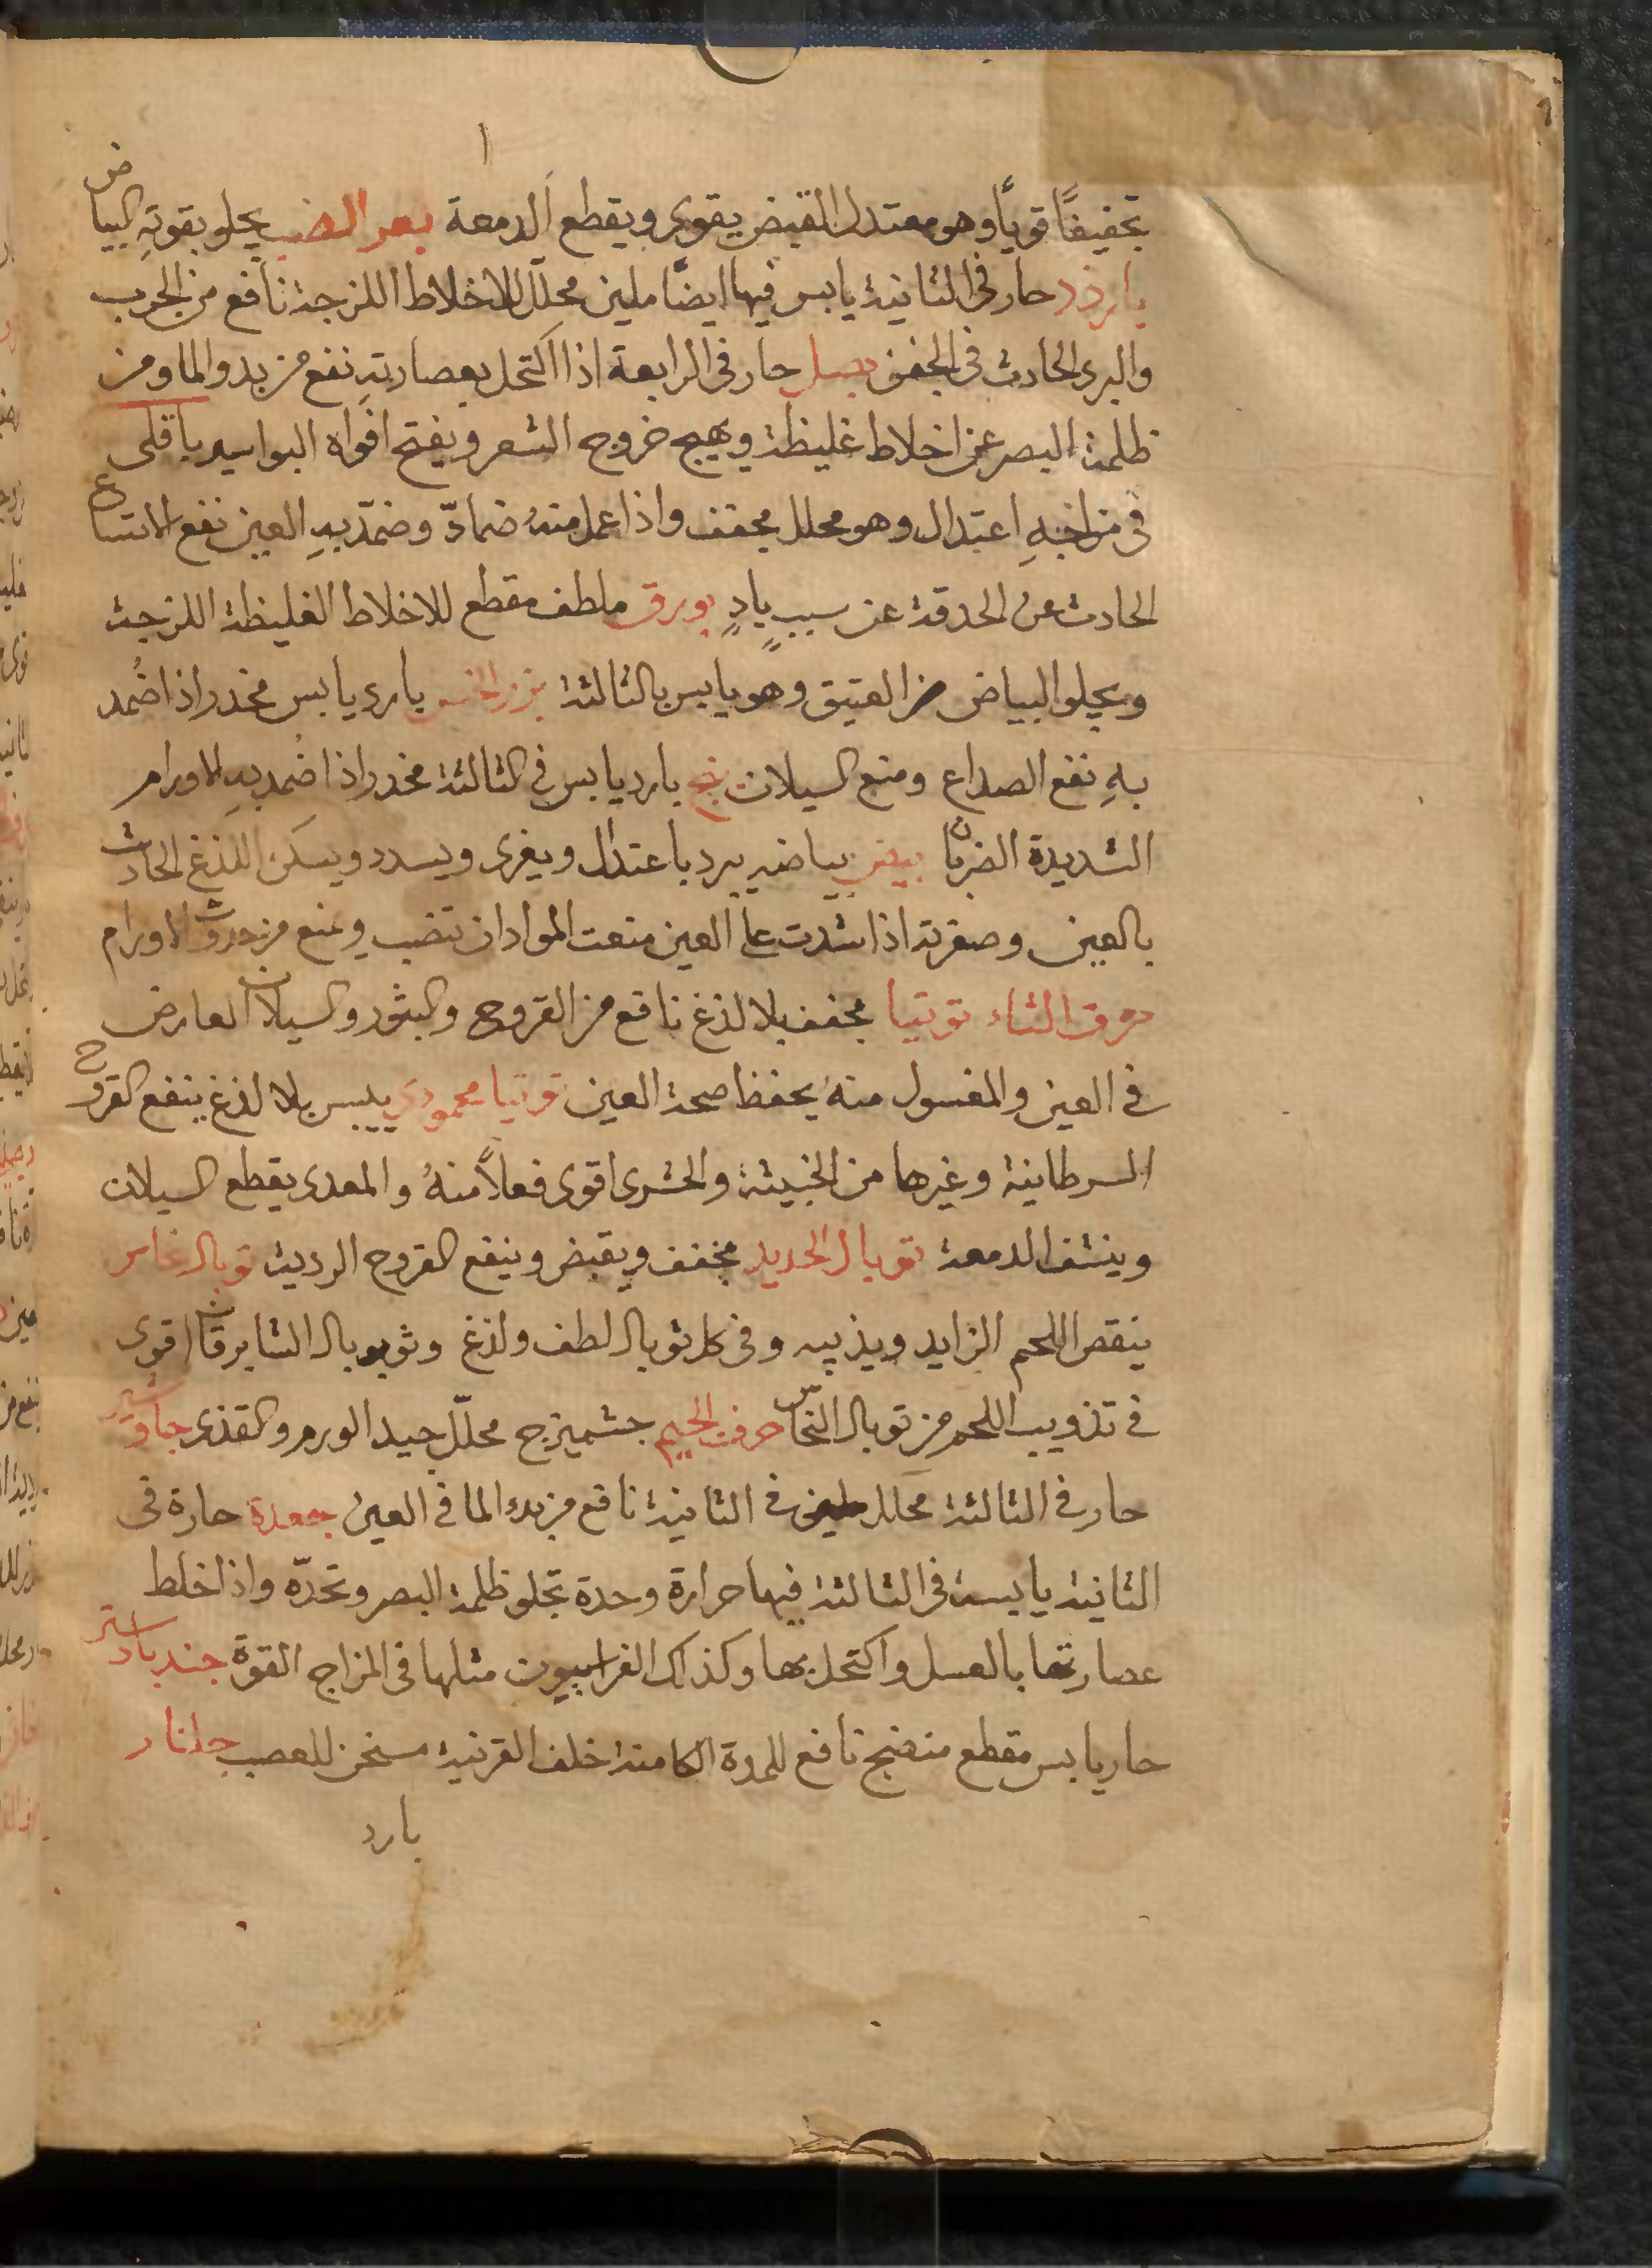 تجفيفًا قويًا وهو معتدل القبض يقوى ويقطع الدمعة بعر الضب يجلو بقوتهِ البياض
بارزد حار فى الثانية يابس فيها ايضًا ملين محلل للاخلاط اللزجة نافع من الجرب
والبرد الحادث فى الجفن بصل حار فى الرابعة اذا اكتحل بعصارتهِ نفع من بدو الما ومن
ظلمة البصر عن اخلاط غليظة ويهيج خروج الشعر ويفتح افواه البواسير باقلى
فى مزاجهِ اعتدال وهو محلل مجفف واذا عمل منهُ ضمادّ وضمّد بهِ العين نفع الاتساع
الحادث عن الحدقة عن سببٍ يادٍ بورق ملطف مقطع للاخلاط الغليظة اللزجة
ويجلو البياض من العتيق وهو يابس بالثالثة بزر الخس بارد يابس مخدر اذا ضُمد
بهِ نفع الصداع ومنع السيلان بنج بارد يابس فى الثالثة مخدر اذا ضُمد بهِ الاورام
الشديدة الضربان بيض بياضه يبرد باعتدال ويغرى ويسدد ويسكن اللذغ الحادث
بالعين وصفرته اذا شدت على العين منعت المواد ان تنصب ويمنع من حدوث الاورام
حرف التاء توتيا مجفف بلا لذغ نافع من القروح والبثور والسيلان العارض
فى العين والمغسول منهُ يحفظ صحة العين توتيا محمودى ييبس بلا لذغ ينفع القروح
السرطانية وغيرها من الخبيثة والحشرى اقوى فعلاً منهُ والمعدى يقطع السيلان
وينشف الدمعة توبال الحديد مجفف ويقبض وينفع القروح الردية توبال نحاس
ينقص اللحم الزايد ويذيبه وفى كل توبال لطف ولذغ وثوبوبال الشابرقان اقوى
فى تذويب اللحم من توبال النحاس حرف الجيم جشميزج محلّل جيد الورم والقذى جاوشير
حار فى الثالثة محلل ملين فى الثانية نافع من بدء الما فى العين جعدة حارة فى
الثانية يابسة فى الثالثة فيها حرارة وحدة تجلو ظلمة البصر وتحدّه واذا خلط
عصارتها بالعسل واكتحل بها وكذلك الفراسيون مثلها فى المزاج القوة جندبادستر
حار يابس مقطع منضج نافع للمدة الكامنة خلف القرنية مسخن للعصب جلنار
بارد